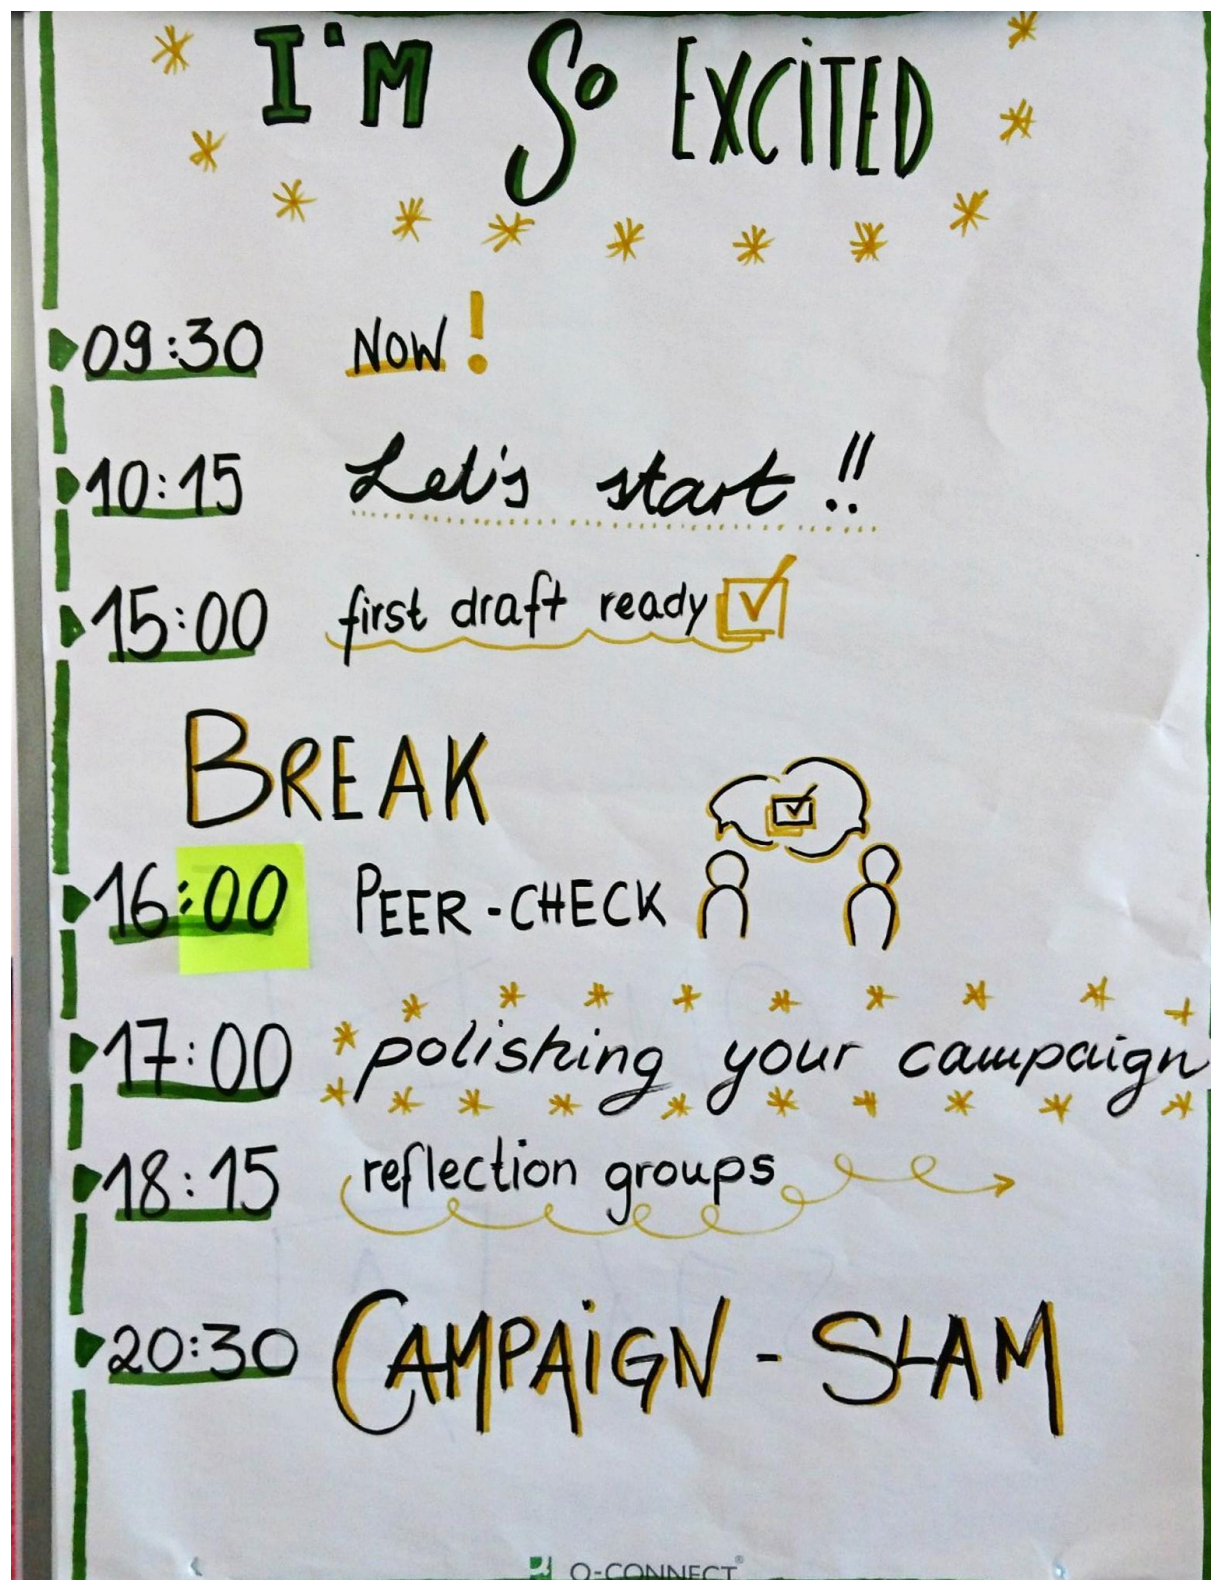 I'M SO EXCITED
09:30 NOW!
10:15 Let's start!!
15:00 first draft ready
BREAK
16:00 PEER-CHECK
17:00 polishing your campaign
18:15 reflection groups
20:30 CAMPAIGN-SLAM
Q-CONNECT®